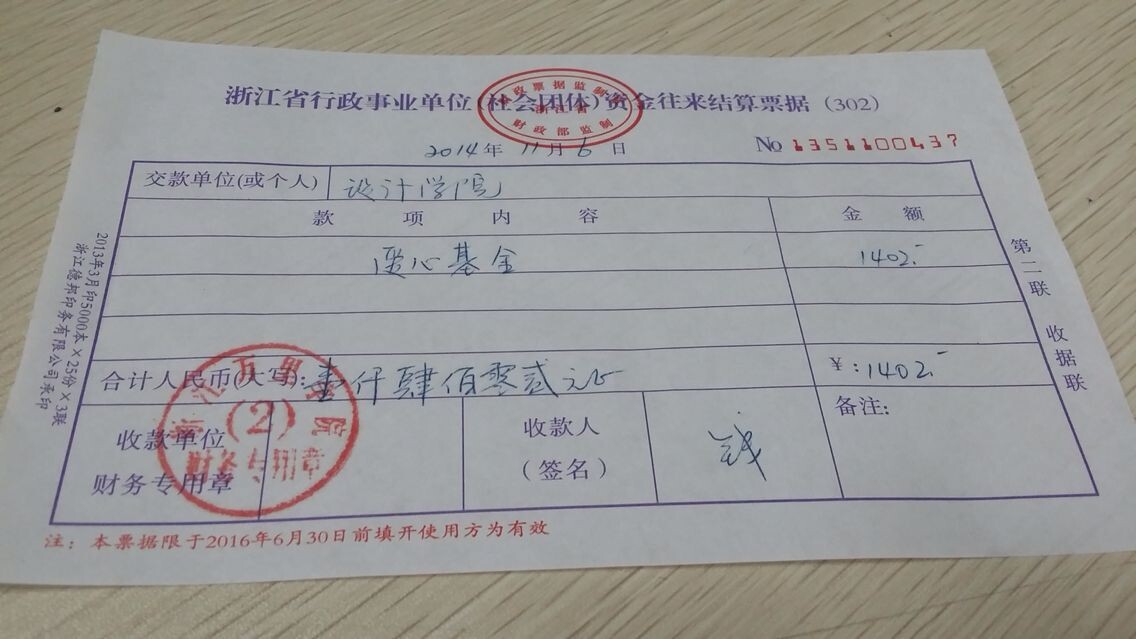 浙江省行政事业单位(社会团体)资金往来结算票据(302)
财政票据监制
浙江省
财政部监制
2014年11月6日
No 1351100437
交款单位(或个人) 设计学院
款项内容 金额
爱心基金 1402.-
合计人民币(大写): 壹仟肆佰零贰元正 ¥:1402.-
收款单位
财务专用章
浙江万里学院
(2)
财务专用章
收款人
(签名)
钱
备注:
第二联 收据联
2013年3月印5000本×25份×3联
浙江德邦印务有限公司承印
注: 本票据限于2016年6月30日前填开使用方为有效